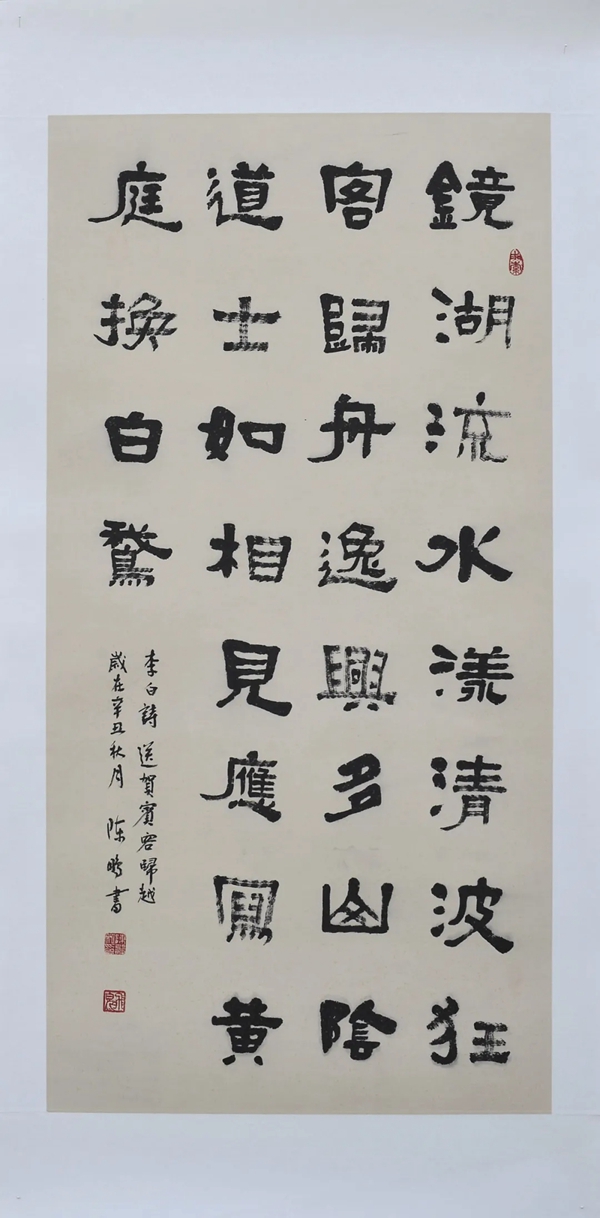 鏡湖流水漾清波狂
客歸舟逸興多山陰
道士如相見應寫黄
庭換白鵞
李白詩 送賀賓客歸越
歲在辛丑秋月 陈 書